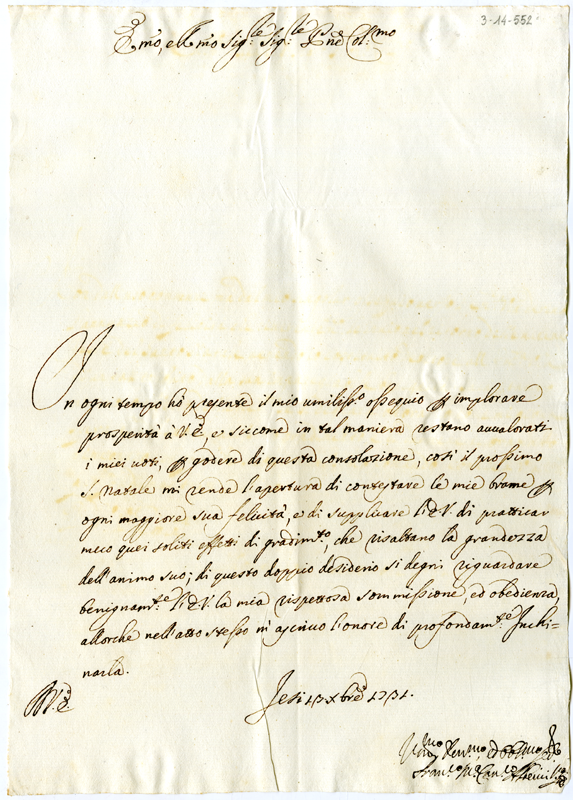 3-14-552
Emo, e Rmo Sigre Sigre Pne Colmo
In ogni tempo hò presente il mio umilisso ossequio per implorare
prosperità à V. E., e siccome in tal maniera restano avvalorati
i miei voti, per godere di questa consolazione, così il prossimo
S. Natale mi rende l'apertura di contestare le mie brame per
ogni maggiore sua felicità, e di supplicare l'E. V. di pratticar
meco quei soliti effetti di gradimto, che risaltano la grandezza
dell'animo suo; di questo doppio desiderio si degni riguardare
benignamte l'E. V. la mia rispettosa sommissione, ed obedienza,
allorche nell'atto stesso m'ascrivo l'onore di profondamte Inchi=
narla.
V. E.
Jesi 13 Xbre 1731.
Umo Devmo ed Obbmo
Franco Ma